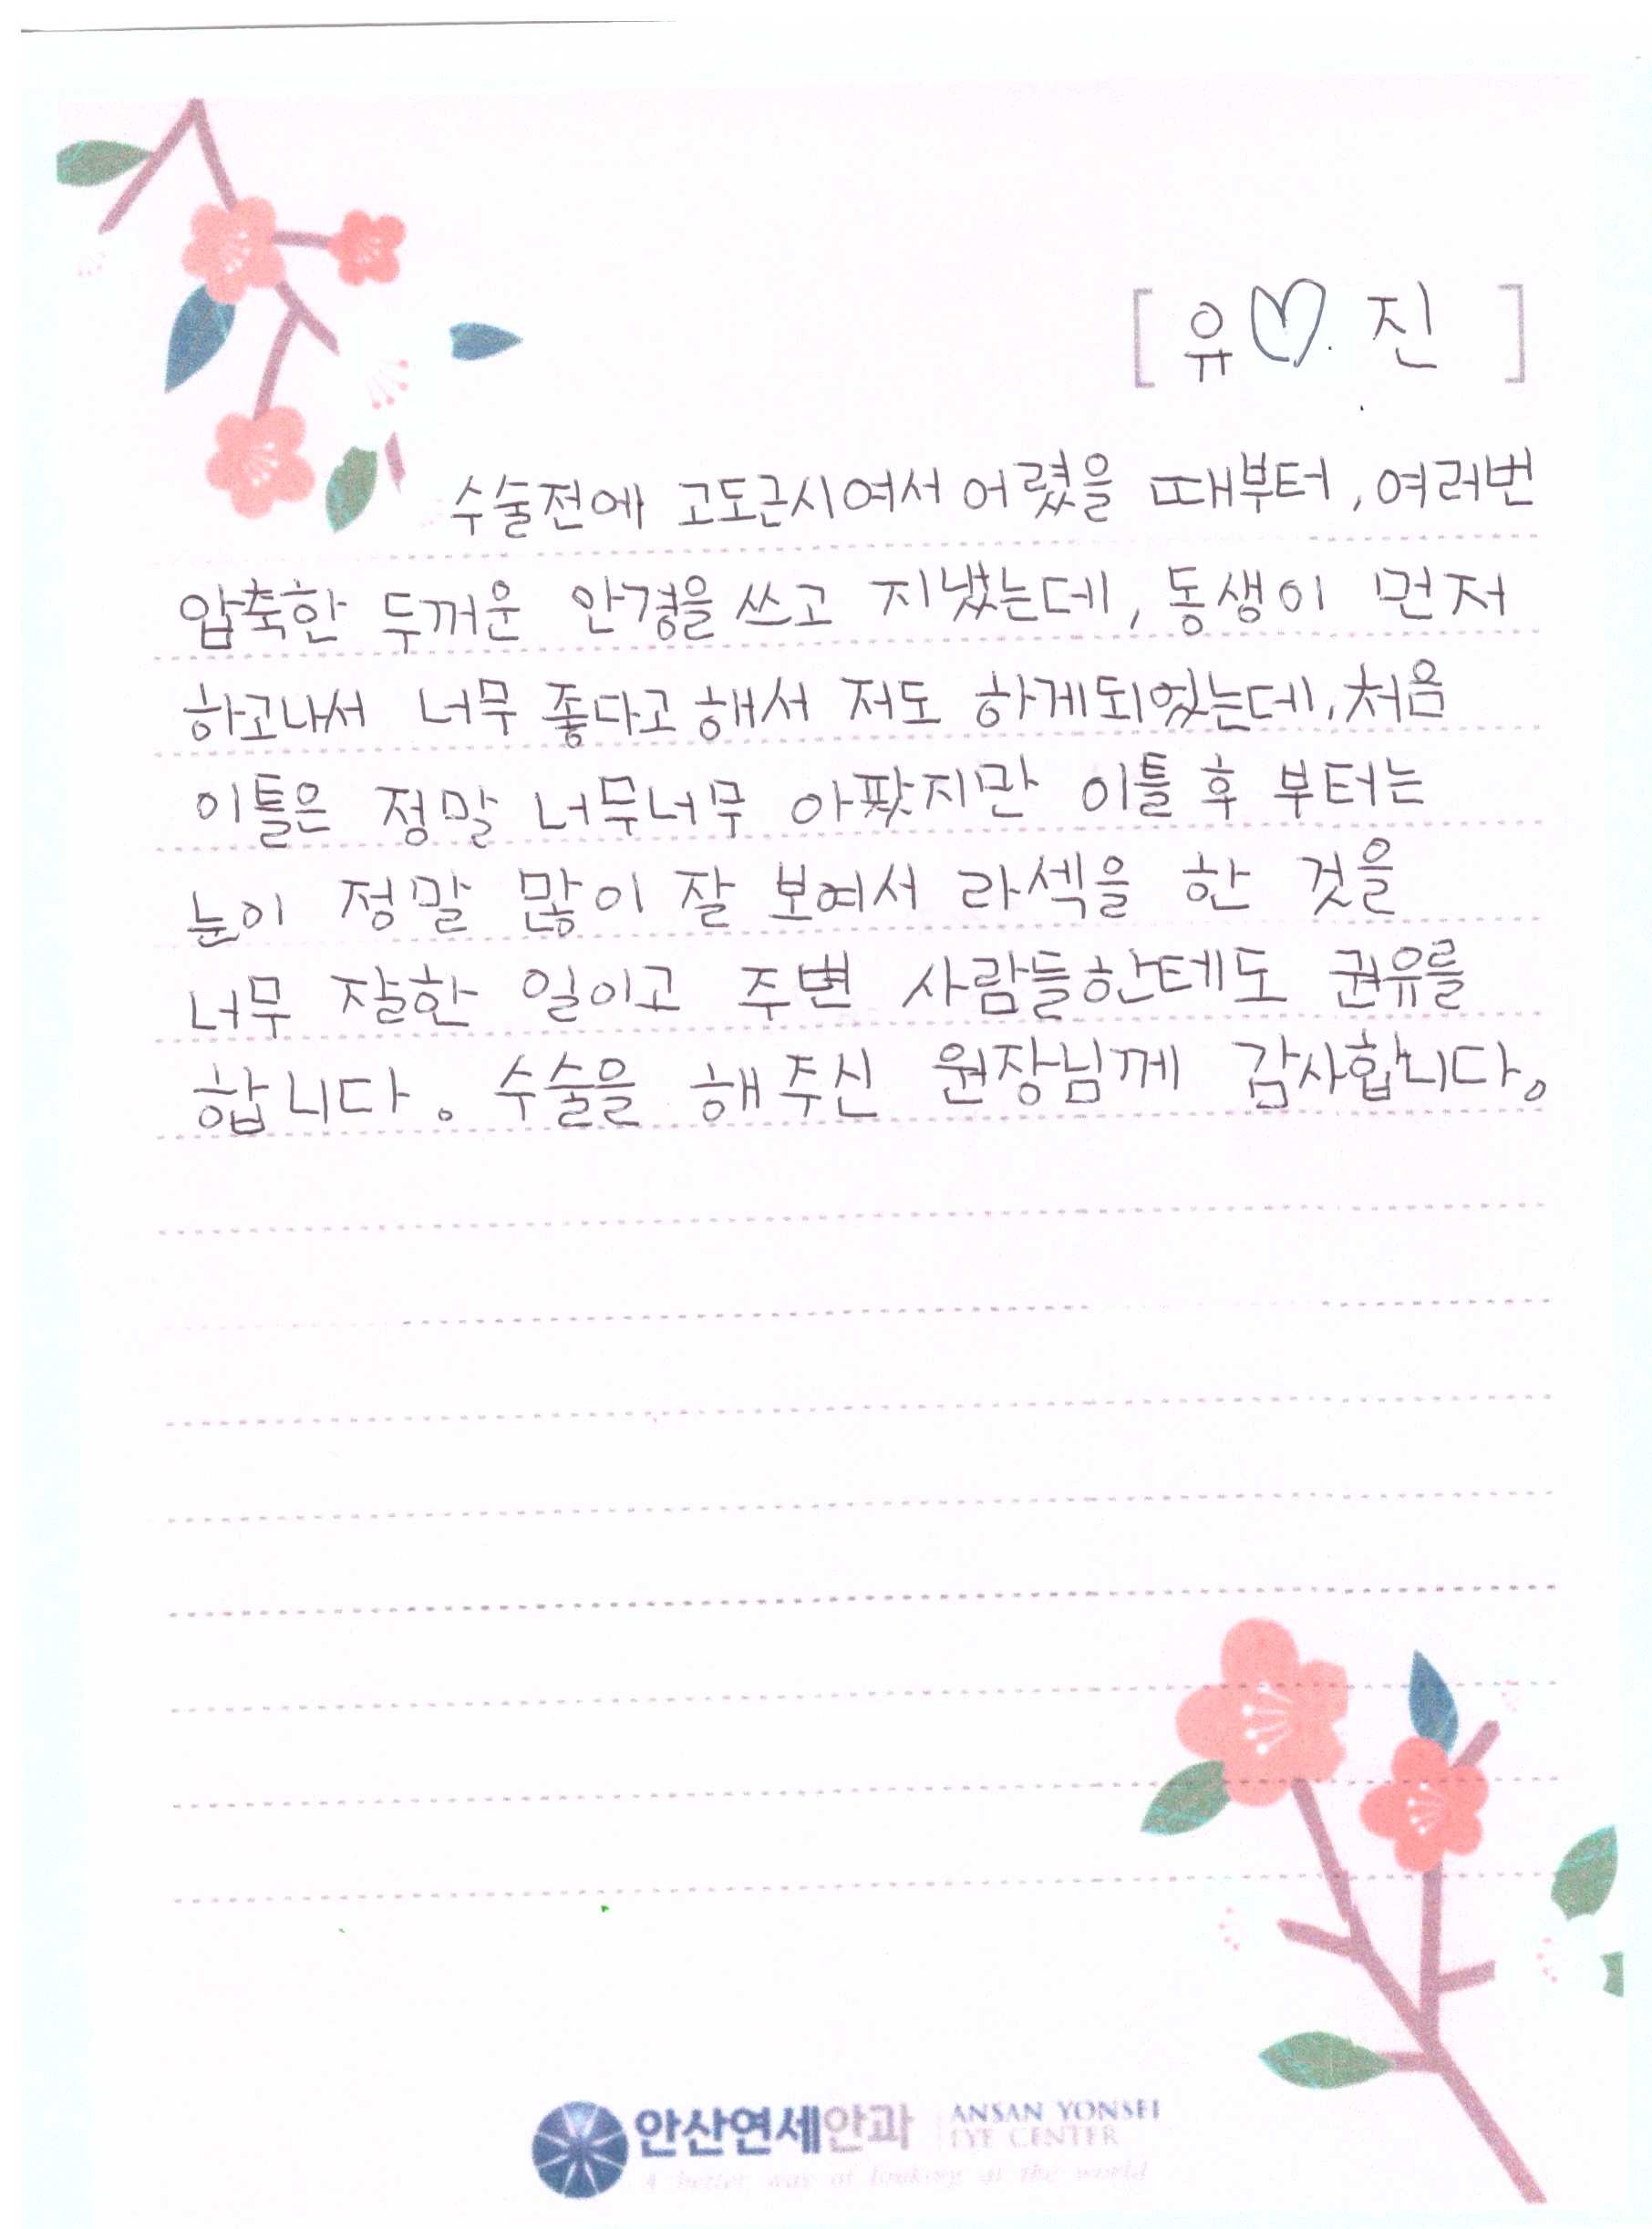 [ 유♡진 ]
수술전에 고도근시여서 어렸을 때부터, 여러번
압축한 두꺼운 안경을 쓰고 지냈는데, 동생이 먼저
하고나서 너무 좋다고 해서 저도 하게되었는데, 처음
이틀은 정말 너무너무 아팠지만 이틀 후 부터는
눈이 정말 많이 잘 보여서 라섹을 한 것을
너무 잘한 일이고 주변 사람들한테도 권유를
합니다. 수술을 해주신 원장님께 감사합니다.
안산연세안과 ANSAN YONSEI
EYE CENTER
A better way of looking at the world